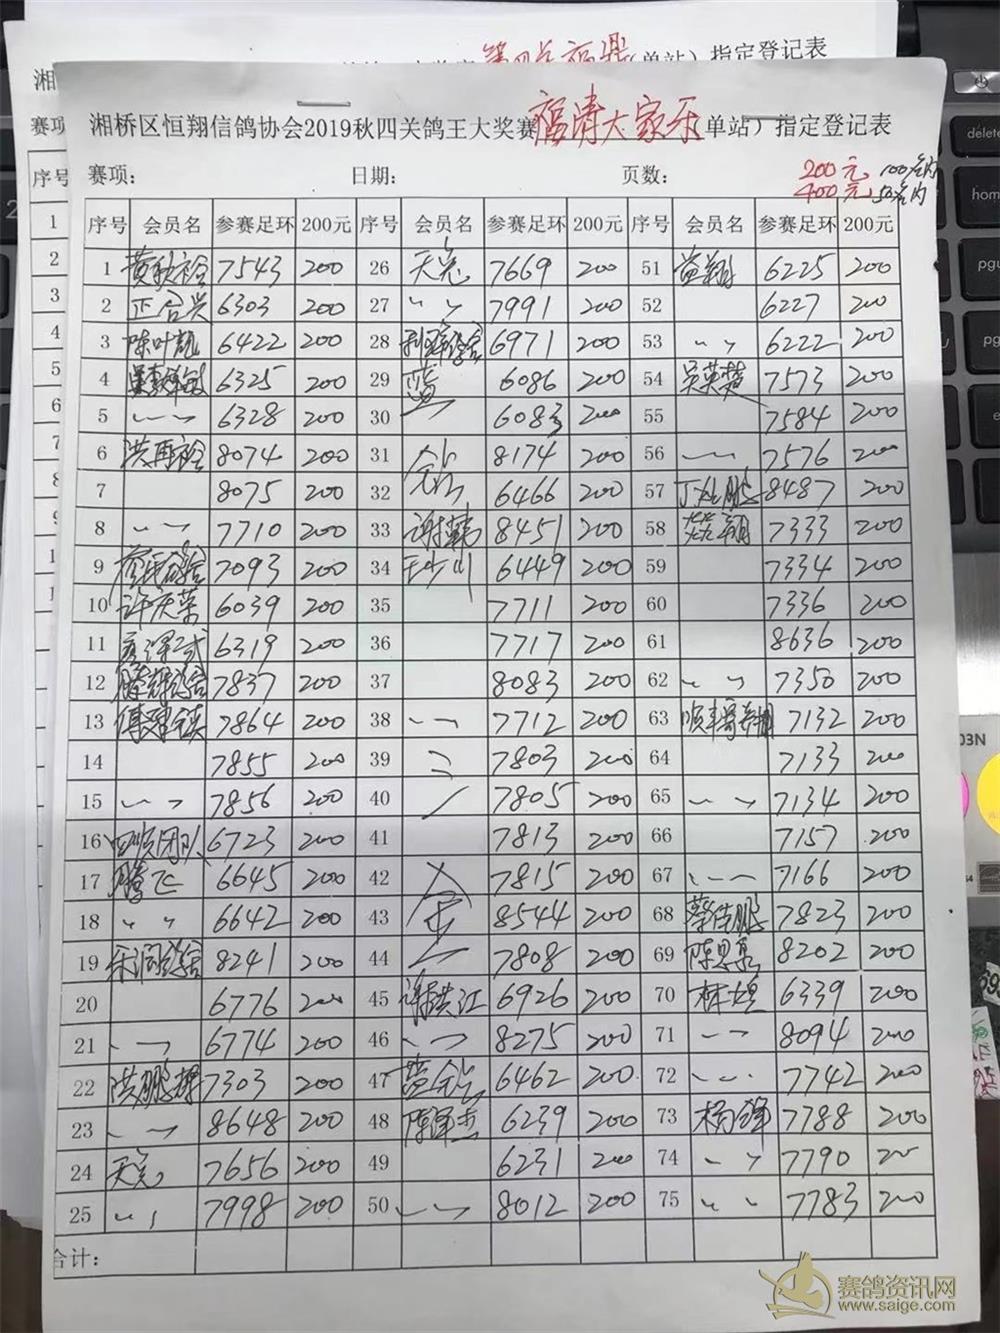 指定登记表
湘桥区恒翔信鸽协会2019秋四关鸽王大奖赛福清大家乐(单站）指定登记表
赛项: 日期: 页数:
200元 100名内
400元 50名内
序号 会员名 参赛足环 200元 序号 会员名 参赛足环 200元 51 会员名 参赛足环 200元
1 黄秋裕 7543 200 26 天龙 7669 200 51 黄翔 6225 200
2 正合兴 6303 200 27 〃 7991 200 52 6227 200
3 陈叶凯 6422 200 28 6971 200 53 〃 6222 200
4 6325 200 29 蓝 6086 200 54 吴英楚 7573 200
5 〃 6328 200 30 6083 200 55 7584 200
6 洪再裕 8074 200 31 8174 200 56 〃 7576 200
7 8075 200 32 6466 200 57 8487 200
8 〃 7710 200 33 8451 200 58 7333 200
9 7093 200 34 6449 200 59 7334 200
10 许天荣 6039 200 35 7711 200 60 7336 200
11 6319 200 36 7717 200 61 8636 200
12 7837 200 37 8083 200 62 〃 7350 200
13 7864 200 38 〃 7712 200 63 7132 200
14 7855 200 39 7803 200 64 7133 200
15 〃 7856 200 40 7805 200 65 〃 7134 200
16 四顺团队 6723 200 41 7813 200 66 7157 200
17 腾飞 6645 200 42 7815 200 67 〃 7166 200
18 〃 6642 200 43 8544 200 68 蔡伟鹏 7823 200
19 8241 200 44 7808 200 69 8202 200
20 6776 200 45 谢洪江 6926 200 70 6339 200
21 〃 6774 200 46 〃 8275 200 71 〃 8094 200
22 洪鹏辉 7303 200 47 6462 200 72 〃 7742 200
23 〃 8648 200 48 陈泽杰 6239 200 73 杨锋 7788 200
24 7656 200 49 6231 200 74 〃 7790 200
25 〃 7998 200 50 〃 8012 200 75 〃 7783 200
合计:
赛鸽资讯网
www.saige.com